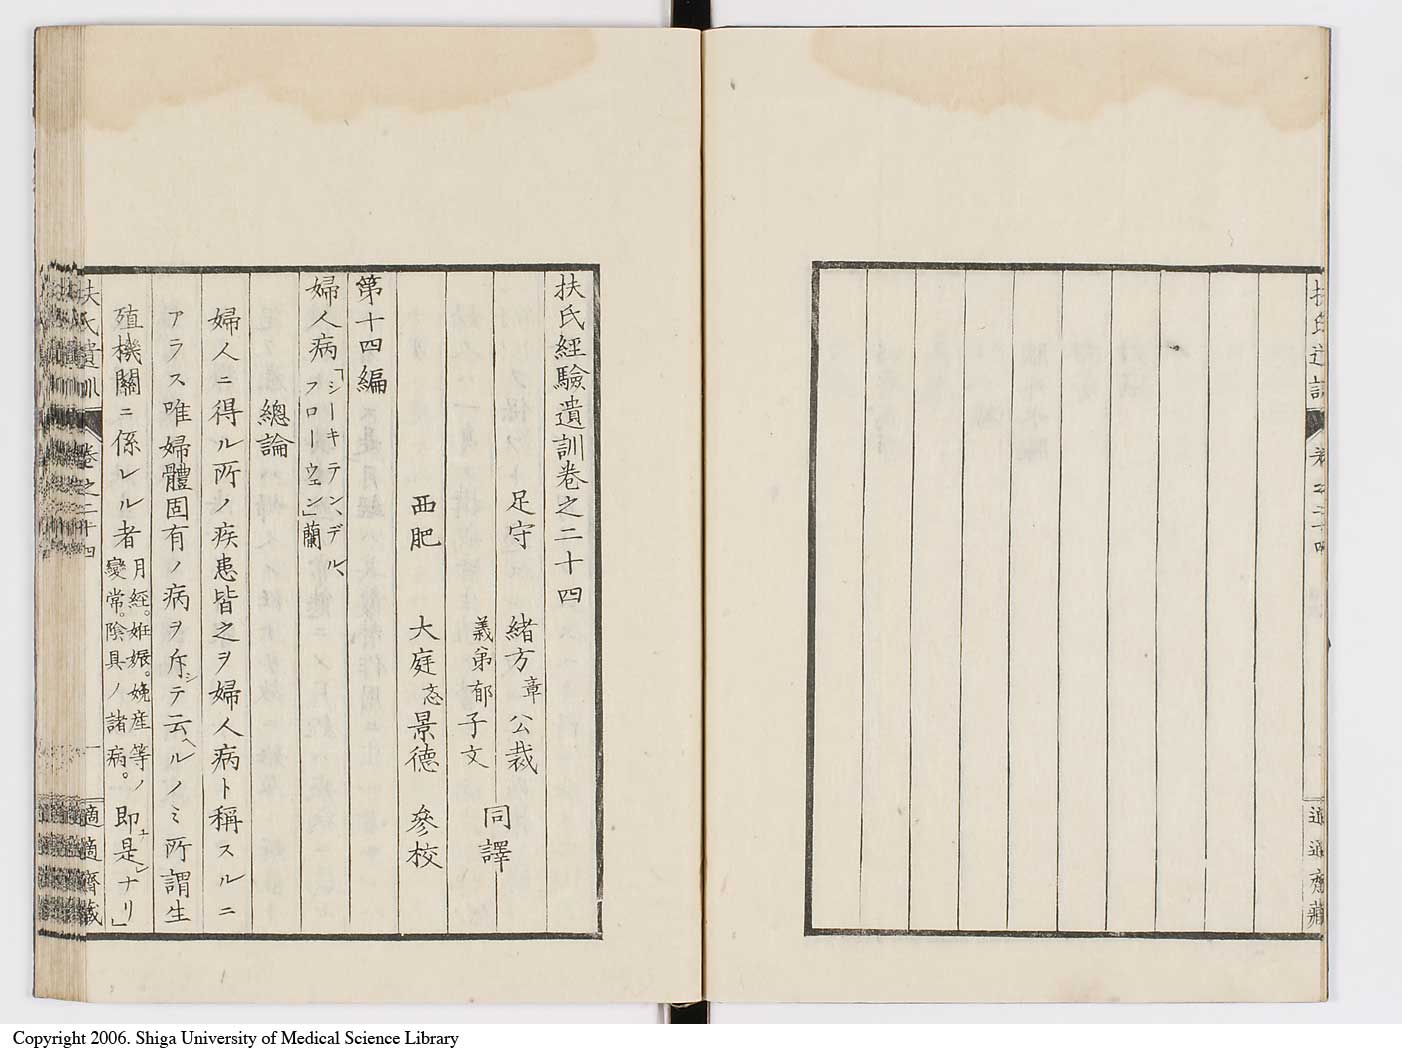 扶氏經驗遺訓卷之二十四
足守 緒方章公裁
義弟郁子文
同譯
西肥 大庭忞景德 參校
第十四編
婦人病「シーキテン、デル、フローウェン」蘭
總論
婦人ニ得ル所ノ疾患皆之ヲ婦人病ト稱スルニ
アラス唯婦體固有ノ病ヲ斥シテ云ヘルノミ所謂生
殖機關ニ係レル者月經。妊娠。娩産等ノ變常。陰具ノ諸病。即是ナリ」
扶氏遺訓 卷之二十四 一 適適齋藏
Copyright 2006. Shiga University of Medical Science Library